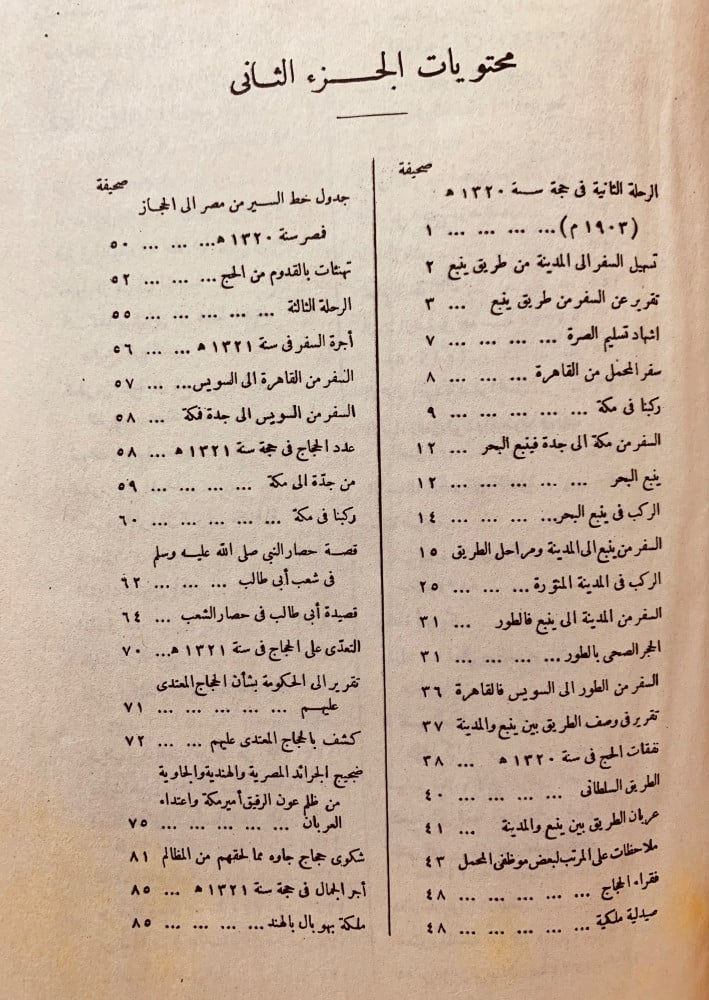 محتويات الجـزء الثانى
صحيفة
الرحلة الثانية فى حجة سنة ١٣٢٠ ه
(١٩٠٣ م) ... ... ... ... ١
تسهيل السفر الى المدينة من طريق ينبع ٢
تقرير عن السفر من طريق ينبع ... ٣
اشهاد تسليم الصرة ... ... ... ... ٧
سفر المحمل من القاهرة ... ... ... ٨
ركبنا فى مكة ... ... ... ... ... ٩
السفر من مكة الى جدة فينبع البحر ... ١٢
ينبع البحر ... ... ... ... ... ١٢
الركب فى ينبع البحر... ... ... ... ١٤
السفر من ينبع الى المدينة ومراحل الطريق ١٥
الركب فى المدينة المنورة ... ... ... ٢٥
السفر من المدينة الى ينبع فالطور ... ٣١
الحجر الصحى بالطور ... ... ... ... ٣١
السفر من الطور الى السويس فالقاهرة ٣٦
تقرير فى وصف الطريق بين ينبع والمدينة ٣٧
نفقات الحج فى سنة ١٣٢٠ ه ... ٣٨
الطريق السلطانى ... ... ... ... ٤٠
عربان الطريق بين ينبع والمدينة ... ٤١
ملاحظات على المرتب لبعض موظفى المحمل ٤٣
فقراء الحجاج ... ... ... ... ... ٤٨
صيدلية ملكية ... ... ... ... ... ٤٨
صحيفة
جدول خط السير من مصر الى الحجاز
فمصر سنة ١٣٢٠ ه... ... ... ٥٠
تهنئات بالقدوم من الحج ... ... ... ٥٢
الرحلة الثالثة ... ... ... ... ... ٥٥
أجرة السفر فى سنة ١٣٢١ ه ... ... ٥٦
السفر من القاهرة الى السويس... ... ٥٧
السفر من السويس الى جدة فمكة ... ٥٨
عدد الحجاج فى حجة سنة ١٣٢١ ه ... ٥٨
من جدّة الى مكة ... ... ... ... ٥٩
ركبنا فى مكة ... ... ... ... ... ٦٠
قصة حصار النبي صلى الله عليه وسلم
فى شعب أبى طالب ... ... ... ٦٢
قصيدة أبى طالب فى حصار الشعب ... ٦٤
التعدّى على الحجاج فى سنة ١٣٢١ ه... ٧٠
تقرير الى الحكومة بشأن الحجاج المعتدى
عليهم ... ... ... ... ... ٧١
كشف بالحجاج المعتدى عليهم ... ... ٧٢
ضجيج الجرائد المصرية والهندية والجاوية
من ظلم عون الرفيق أمير مكة واعتداء
العربان ... ... ... ... ... ٧٥
شكوى حجاج جاوه مما لحقهم من المظالم ٨١
أجر الجمال فى حجة سنة ١٣٢١ ه ... ٨٥
ملكة بهو بال بالهند... ... ... ... ٨٥